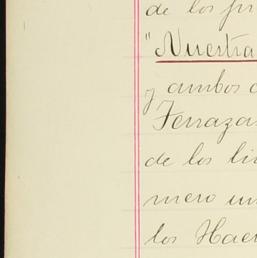 de los pr
"Nuestra
y ambos
Terraza
de los li
mero un
los Hae